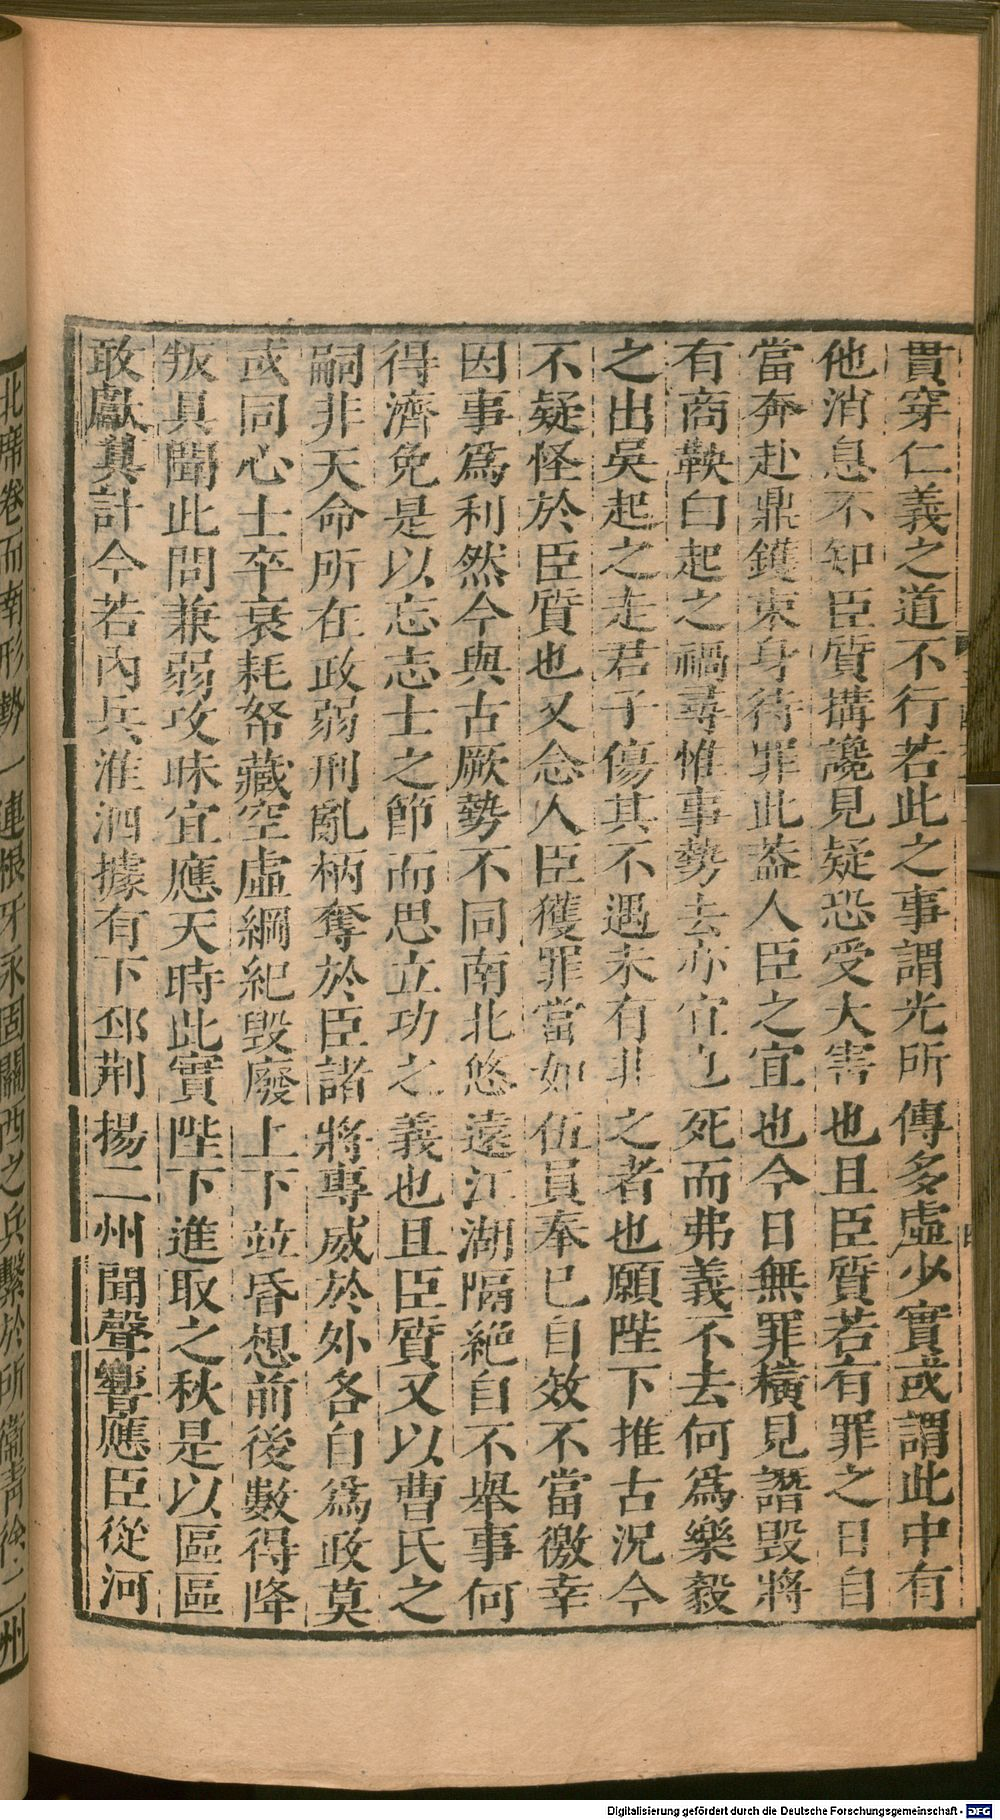 貫穿仁義之道不行若此之事謂光所傳多虛少實或謂此中有
他消息不知臣質搆讒見疑恐受大害也且臣質若有罪之日自
當奔赴鼎鑊束身待罪此葢人臣之宜也今日無罪橫見譖毀將
有商鞅白起之禍尋惟事勢去亦宜也死而弗義不去何爲樂毅
之出吳起之走君子傷其不遇未有非之者也願陛下推古況今
不疑怪於臣質也又念人臣獲罪當如伍員奉已自效不當徼幸
因事爲利然今與古厥勢不同南北悠遠江湖隔絶自不舉事何
得濟免是以忘志士之節而思立功之義也且臣質又以曹氏之
嗣非天命所在政弱刑亂柄奪於臣諸將專威於外各自爲政莫
或同心士卒衰耗帑藏空虛綱紀毀廢上下竝昏想前後數得降
叛具聞此問兼弱攻昧宜應天時此實陛下進取之秋是以區區
敢獻其計今若內兵淮泗據有下邳荆揚二州聞聲響應臣從河
北席卷而南形勢一連根牙永固關西之兵繫於所衞靑徐二州
Digitalisierung gefördert durch die Deutsche Forschungsgemeinschaft - DFG